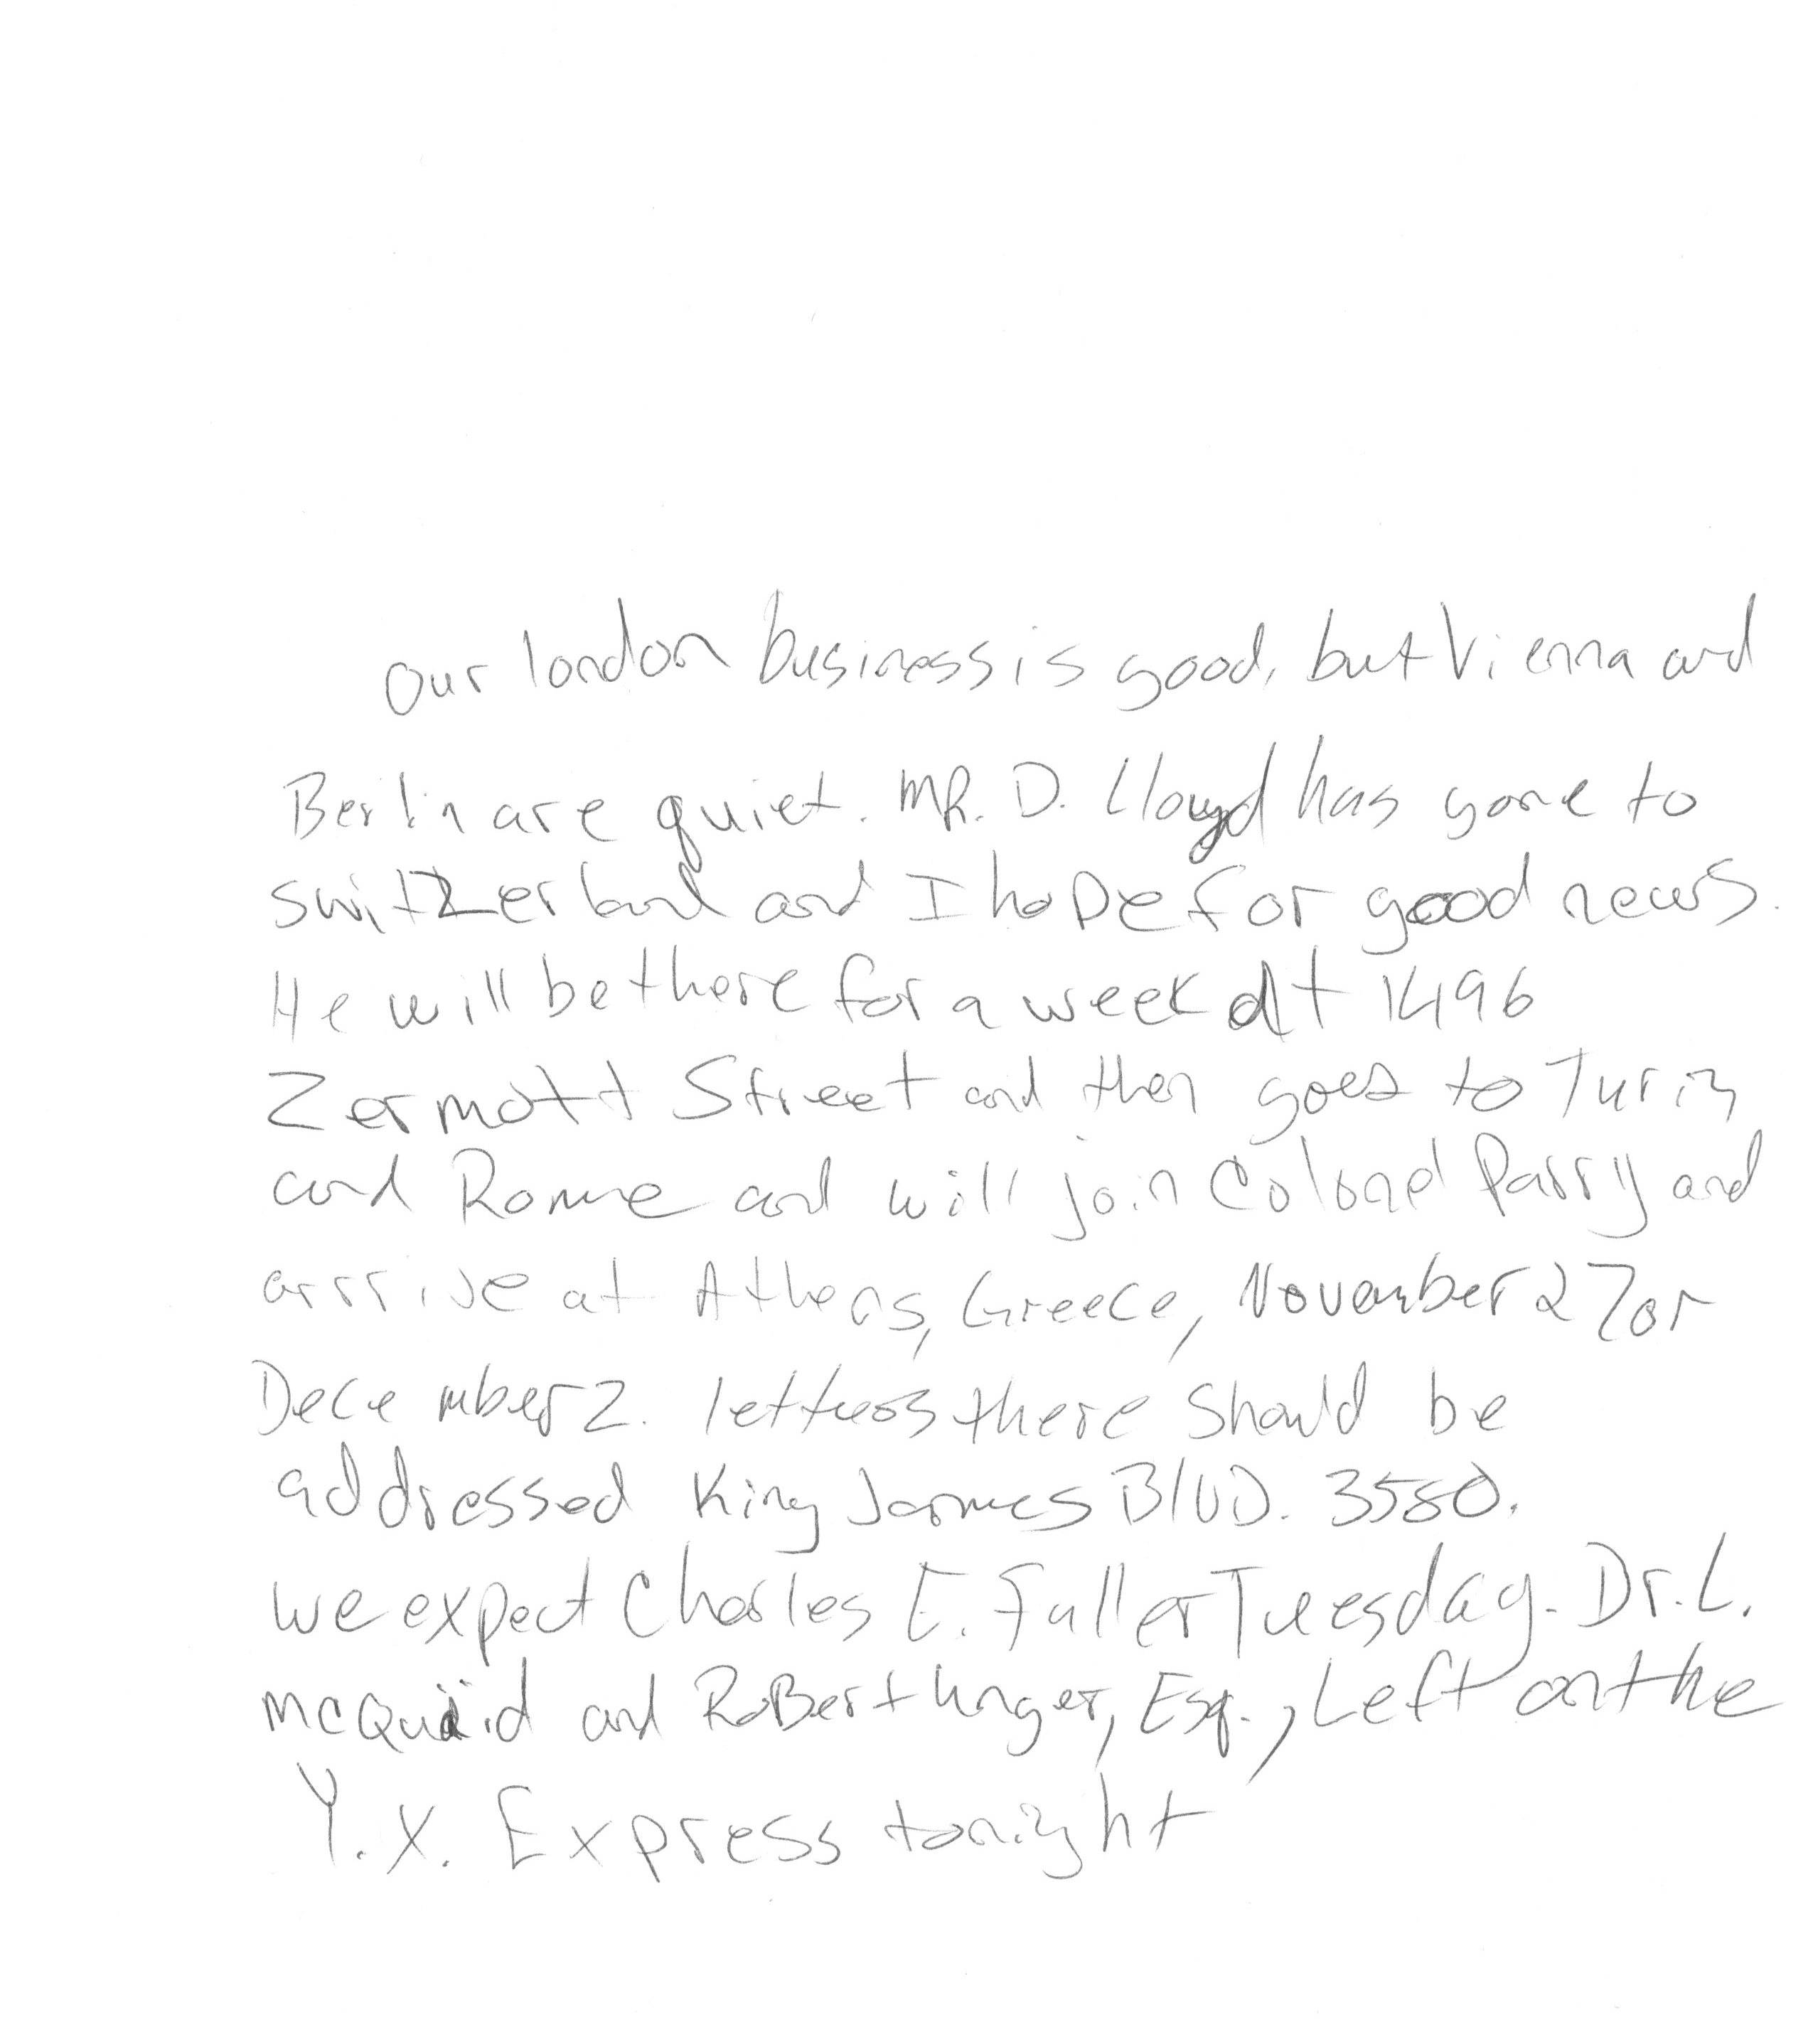 our london business is good, but Vienna and
Berlin are quiet. MR. D. Lloyd has gone to
switzerland and I hope for good news.
He will be there for a week at 1496
Zermott Street and then goes to Turin
and Rome and will join Colonel Parry and
arrive at Athens, Greece, November 27 or
December 2. letters there should be
addressed King James Blvd. 3580.
we expect Charles E. Fuller Tuesday. Dr. L.
McQuaid and RoBert Unger, Esq., Left on the
Y.X. Express tonight